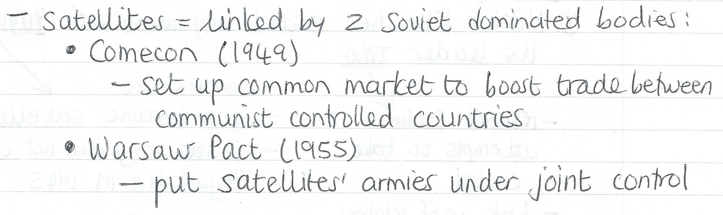 - Satellites = linked by 2 Soviet dominated bodies:
• Comecon (1949)
- set up common market to boost trade between
communist controlled countries
• Warsaw Pact (1955)
- put satellites' armies under joint control